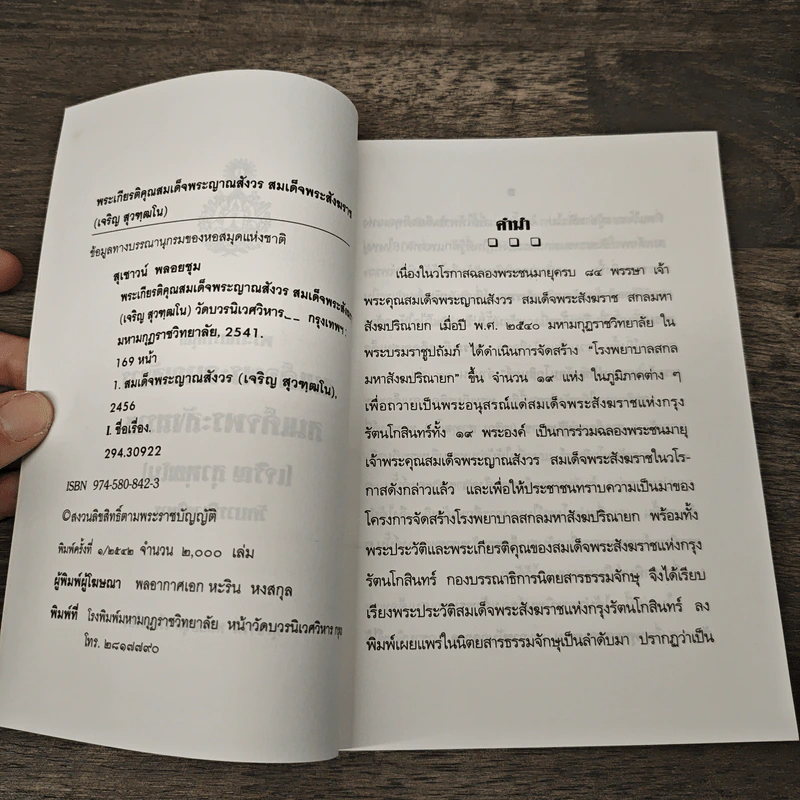 พระเกียรติคุณสมเด็จพระญาณสังวร สมเด็จพระสังฆราช
(เจริญ สุวฑฺฒโน)
ข้อมูลทางบรรณานุกรมของหอสมุดแห่งชาติ
สุเชาวน์ พลอยชุม
พระเกียรติคุณสมเด็จพระญาณสังวร สมเด็จพระสังฆราช
(เจริญ สุวฑฺฒโน) วัดบวรนิเวศวิหาร__ กรุงเทพฯ :
มหามกุฏราชวิทยาลัย, 2541.
169 หน้า
1. สมเด็จพระญาณสังวร (เจริญ สุวฑฺฒโน),
2456
I. ชื่อเรื่อง.
294.30922
ISBN 974-580-842-3
©สงวนลิขสิทธิ์ตามพระราชบัญญัติ
พิมพ์ครั้งที่ ๑/๒๕๔๒ จำนวน ๒,๐๐๐ เล่ม
ผู้พิมพ์ผู้โฆษณา พลอากาศเอก หะริน หงสกุล
พิมพ์ที่ โรงพิมพ์มหามกุฏราชวิทยาลัย หน้าวัดบวรนิเวศวิหาร กรุง
โทร. ๒๘๑๗๗๙๐
คำนำ
เนื่องในวโรกาสฉลองพระชนมายุครบ ๘๔ พรรษา เจ้า
พระคุณสมเด็จพระญาณสังวร สมเด็จพระสังฆราช สกลมหา
สังฆปริณายก เมื่อปี พ.ศ. ๒๕๔๐ มหามกุฏราชวิทยาลัย ใน
พระบรมราชูปถัมภ์ ได้ดำเนินการจัดสร้าง “โรงพยาบาลสกล
มหาสังฆปริณายก” ขึ้น จำนวน ๑๙ แห่ง ในภูมิภาคต่าง ๆ
เพื่อถวายเป็นพระอนุสรณ์แด่สมเด็จพระสังฆราชแห่งกรุง
รัตนโกสินทร์ทั้ง ๑๙ พระองค์ เป็นการร่วมฉลองพระชนมายุ
เจ้าพระคุณสมเด็จพระญาณสังวร สมเด็จพระสังฆราชในวโร-
กาสดังกล่าวแล้ว และเพื่อให้ประชาชนทราบความเป็นมาของ
โครงการจัดสร้างโรงพยาบาลสกลมหาสังฆปริณายก พร้อมทั้ง
พระประวัติและพระเกียรติคุณของสมเด็จพระสังฆราชแห่งกรุง
รัตนโกสินทร์ กองบรรณาธิการนิตยสารธรรมจักษุ จึงได้เรียบ
เรียงพระประวัติสมเด็จพระสังฆราชแห่งกรุงรัตนโกสินทร์ ลง
พิมพ์เผยแพร่ในนิตยสารธรรมจักษุเป็นลำดับมา ปรากฏว่าเป็น